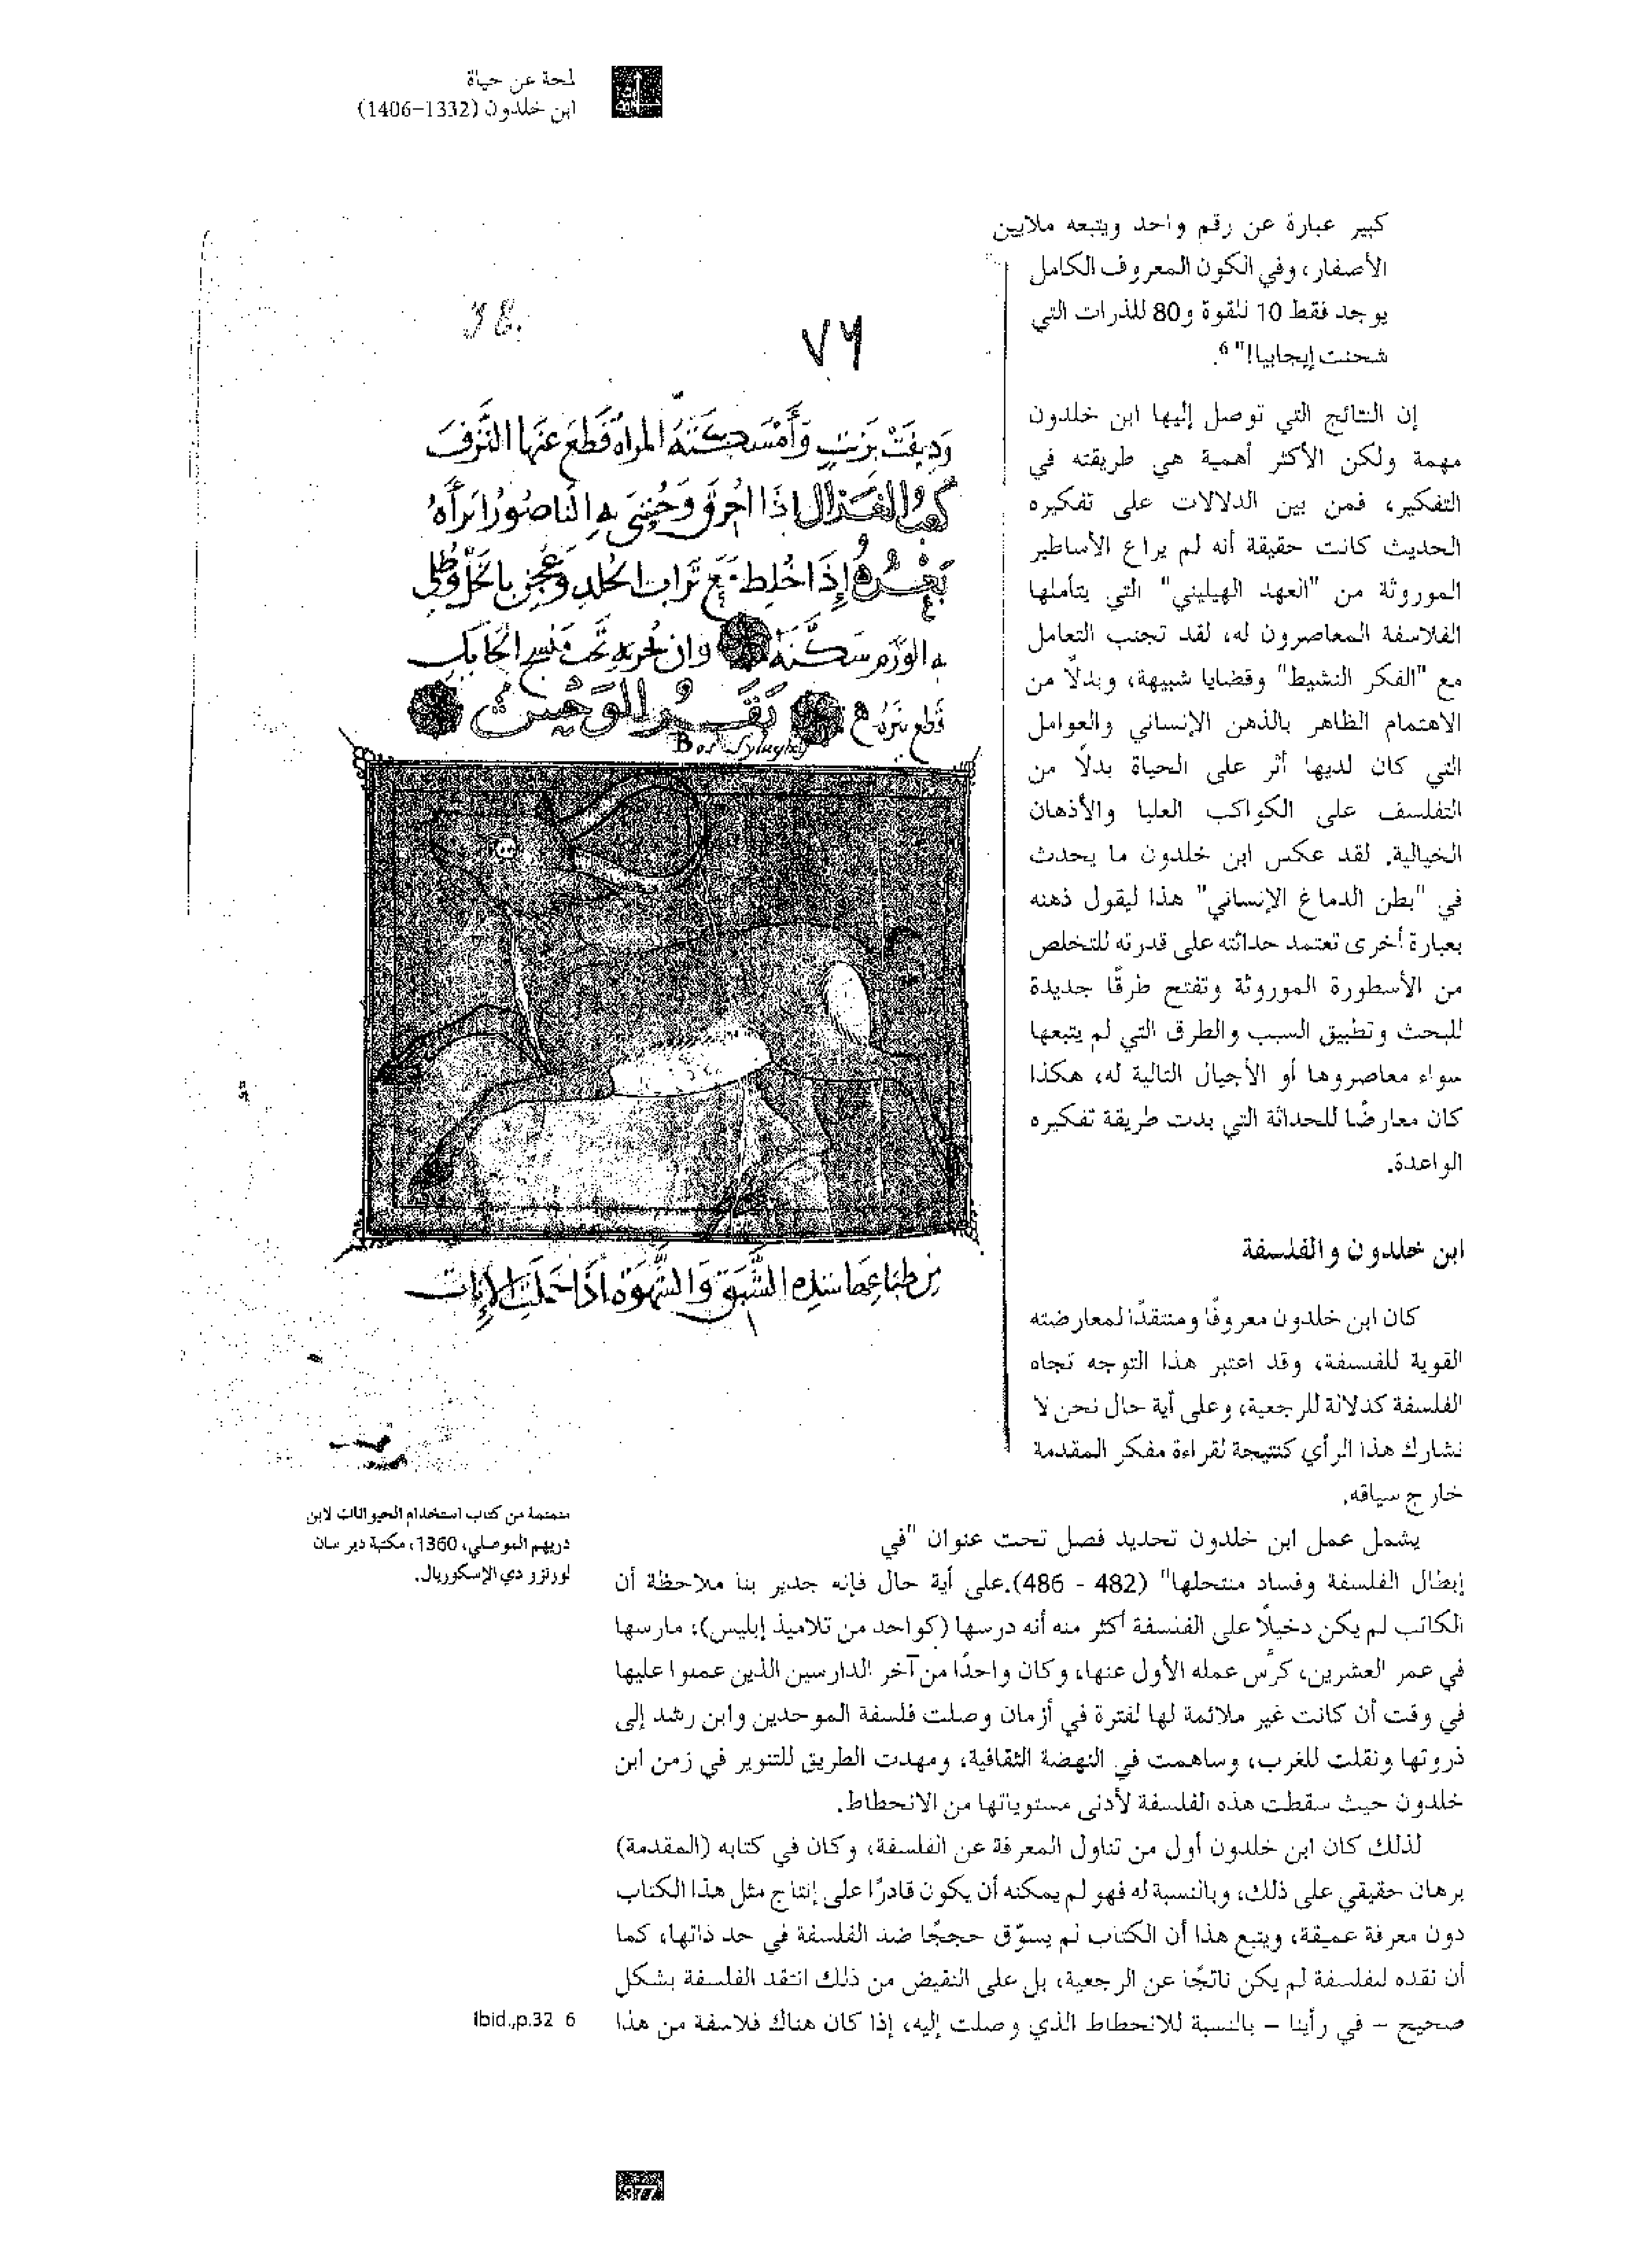 لمحة عن حياة
ابن خلدون (1332-1406)
كبير عبارة عن رقم واحد ويتبعه ملايين
الأصفار، وفي الكون المعروف الكامل
يوجد فقط 10 للقوة و80 للذرات التي
شحنت إيجابيا!" 6.
إن النتائج التي توصل إليها ابن خلدون
مهمة ولكن الأكثر أهمية هي طريقته في
التفكير، فمن بين الدلالات على تفكيره
الحديث كانت حقيقة أنه لم يراع الأساطير
الموروثة من "العهد الهيليني" التي يتأملها
الفلاسفة المعاصرون له، لقد تجنب التعامل
مع "الفكر النشيط" وقضايا شبيهة، وبدلًا من
الاهتمام الظاهر بالذهن الإنساني والعوامل
التي كان لديها أثر على الحياة بدلًا من
التفلسف على الكواكب العليا والأذهان
الخيالية. لقد عكس ابن خلدون ما يحدث
في "بطن الدماغ الإنساني" هذا ليقول ذهنه
بعبارة أخرى تعتمد حداثته على قدرته للتخلص
من الأسطورة الموروثة وتفتح طرقًا جديدة
للبحث وتطبيق السبب والطرق التي لم يتبعها
سواء معاصروها أو الأجيال التالية له، هكذا
كان معارضًا للحداثة التي بدت طريقة تفكيره
الواعدة.
ابن خلدون والفلسفة
كان ابن خلدون معروفًا ومنتقدًا لمعارضته
القوية للفلسفة، وقد اعتبر هذا التوجه تجاه
الفلسفة كدلالة للرجعية، وعلى أية حال نحن لا
نشارك هذا الرأي كنتيجة لقراءة مفكر المقدمة
خارج سياقه.
يشمل عمل ابن خلدون تحديد فصل تحت عنوان "في
إبطال الفلسفة وفساد منتحلها" (482 - 486).على أية حال فإنه جدير بنا ملاحظة أن
الكاتب لم يكن دخيلًا على الفلسفة أكثر منه أنه درسها (كواحد من تلاميذ إبليس)؛ مارسها
في عمر العشرين، كرّس عمله الأول عنها، وكان واحدًا من آخر الدارسين الذين عملوا عليها
في وقت أن كانت غير ملائمة لها لفترة في أزمان وصلت فلسفة الموحدين وابن رشد إلى
ذروتها ونقلت للغرب، وساهمت في النهضة الثقافية، ومهدت الطريق للتنوير في زمن ابن
خلدون حيث سقطت هذه الفلسفة لأدنى مستوياتها من الانحطاط.
لذلك كان ابن خلدون أول من تناول المعرفة عن الفلسفة، وكان في كتابه (المقدمة)
برهان حقيقي على ذلك، وبالنسبة له فهو لم يمكنه أن يكون قادرًا على إنتاج مثل هذا الكتاب
دون معرفة عميقة، ويتبع هذا أن الكتاب لم يسوّق حججًا ضد الفلسفة في حد ذاتها، كما
أن نقده لفلسفة لم يكن ناتجًا عن الرجعية، بل على النقيض من ذلك انتقد الفلسفة بشكل
صحيح – في رأينا – بالنسبة للانحطاط الذي وصلت إليه، إذا كان هناك فلاسفة من هذا
٧٦
منمنمة من كتاب استخدام الحيوانات لابن
دريهم الموصلي، 1360، مكتبة دير سان
لورنزو دي الإسكوريال.
Ibid.,p.32 6
377